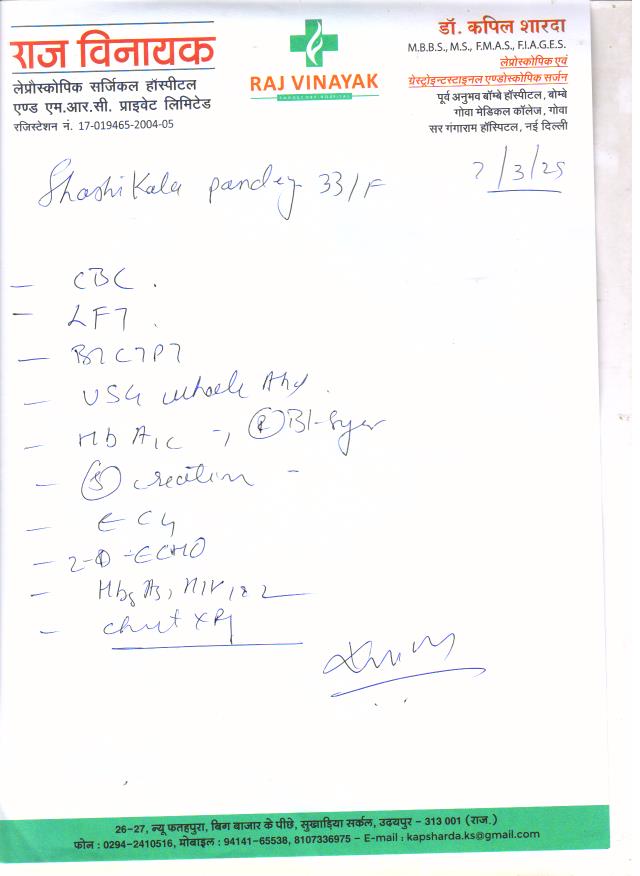 राज विनायक
लेप्रौस्कोपिक सर्जिकल हॉस्पीटल
एण्ड एम.आर.सी. प्राइवेट लिमिटेड
रजिस्टेशन नं. 17-019465-2004-05
RAJ VINAYAK
डॉ. कपिल शारदा
M.B.B.S., M.S., F.M.A.S., F.I.A.G.E.S.
लेप्रौस्कोपिक एवं
ग्रेस्ट्रोइन्टस्टाइनल एण्डोस्कोपिक सर्जन
पूर्व अनुभव बॉम्बे हॉस्पीटल, बोम्बे
गोवा मेडिकल कॉलेज, गोवा
सर गंगाराम हॉस्पिटल, नई दिल्ली
Shashi Kala pandey 33/F
7/3/25
- CBC.
- LFT.
- BT CT PT
- USG whole Abd.
- HbA1C -, (R) Bl-sugar
- (S) creatinin -
- ECG
- 2-D-ECHO
- HbsAg, HIV 1&2
- chest XRy
26-27, न्यू फतहपुरा, बिग बाजार के पीछे, सुखाड़िया सर्कल, उदयपुर - 313 001 (राज.)
फोन : 0294-2410516, मोबाइल : 94141-65538, 8107336975 - E-mail : kapsharda.ks@gmail.com